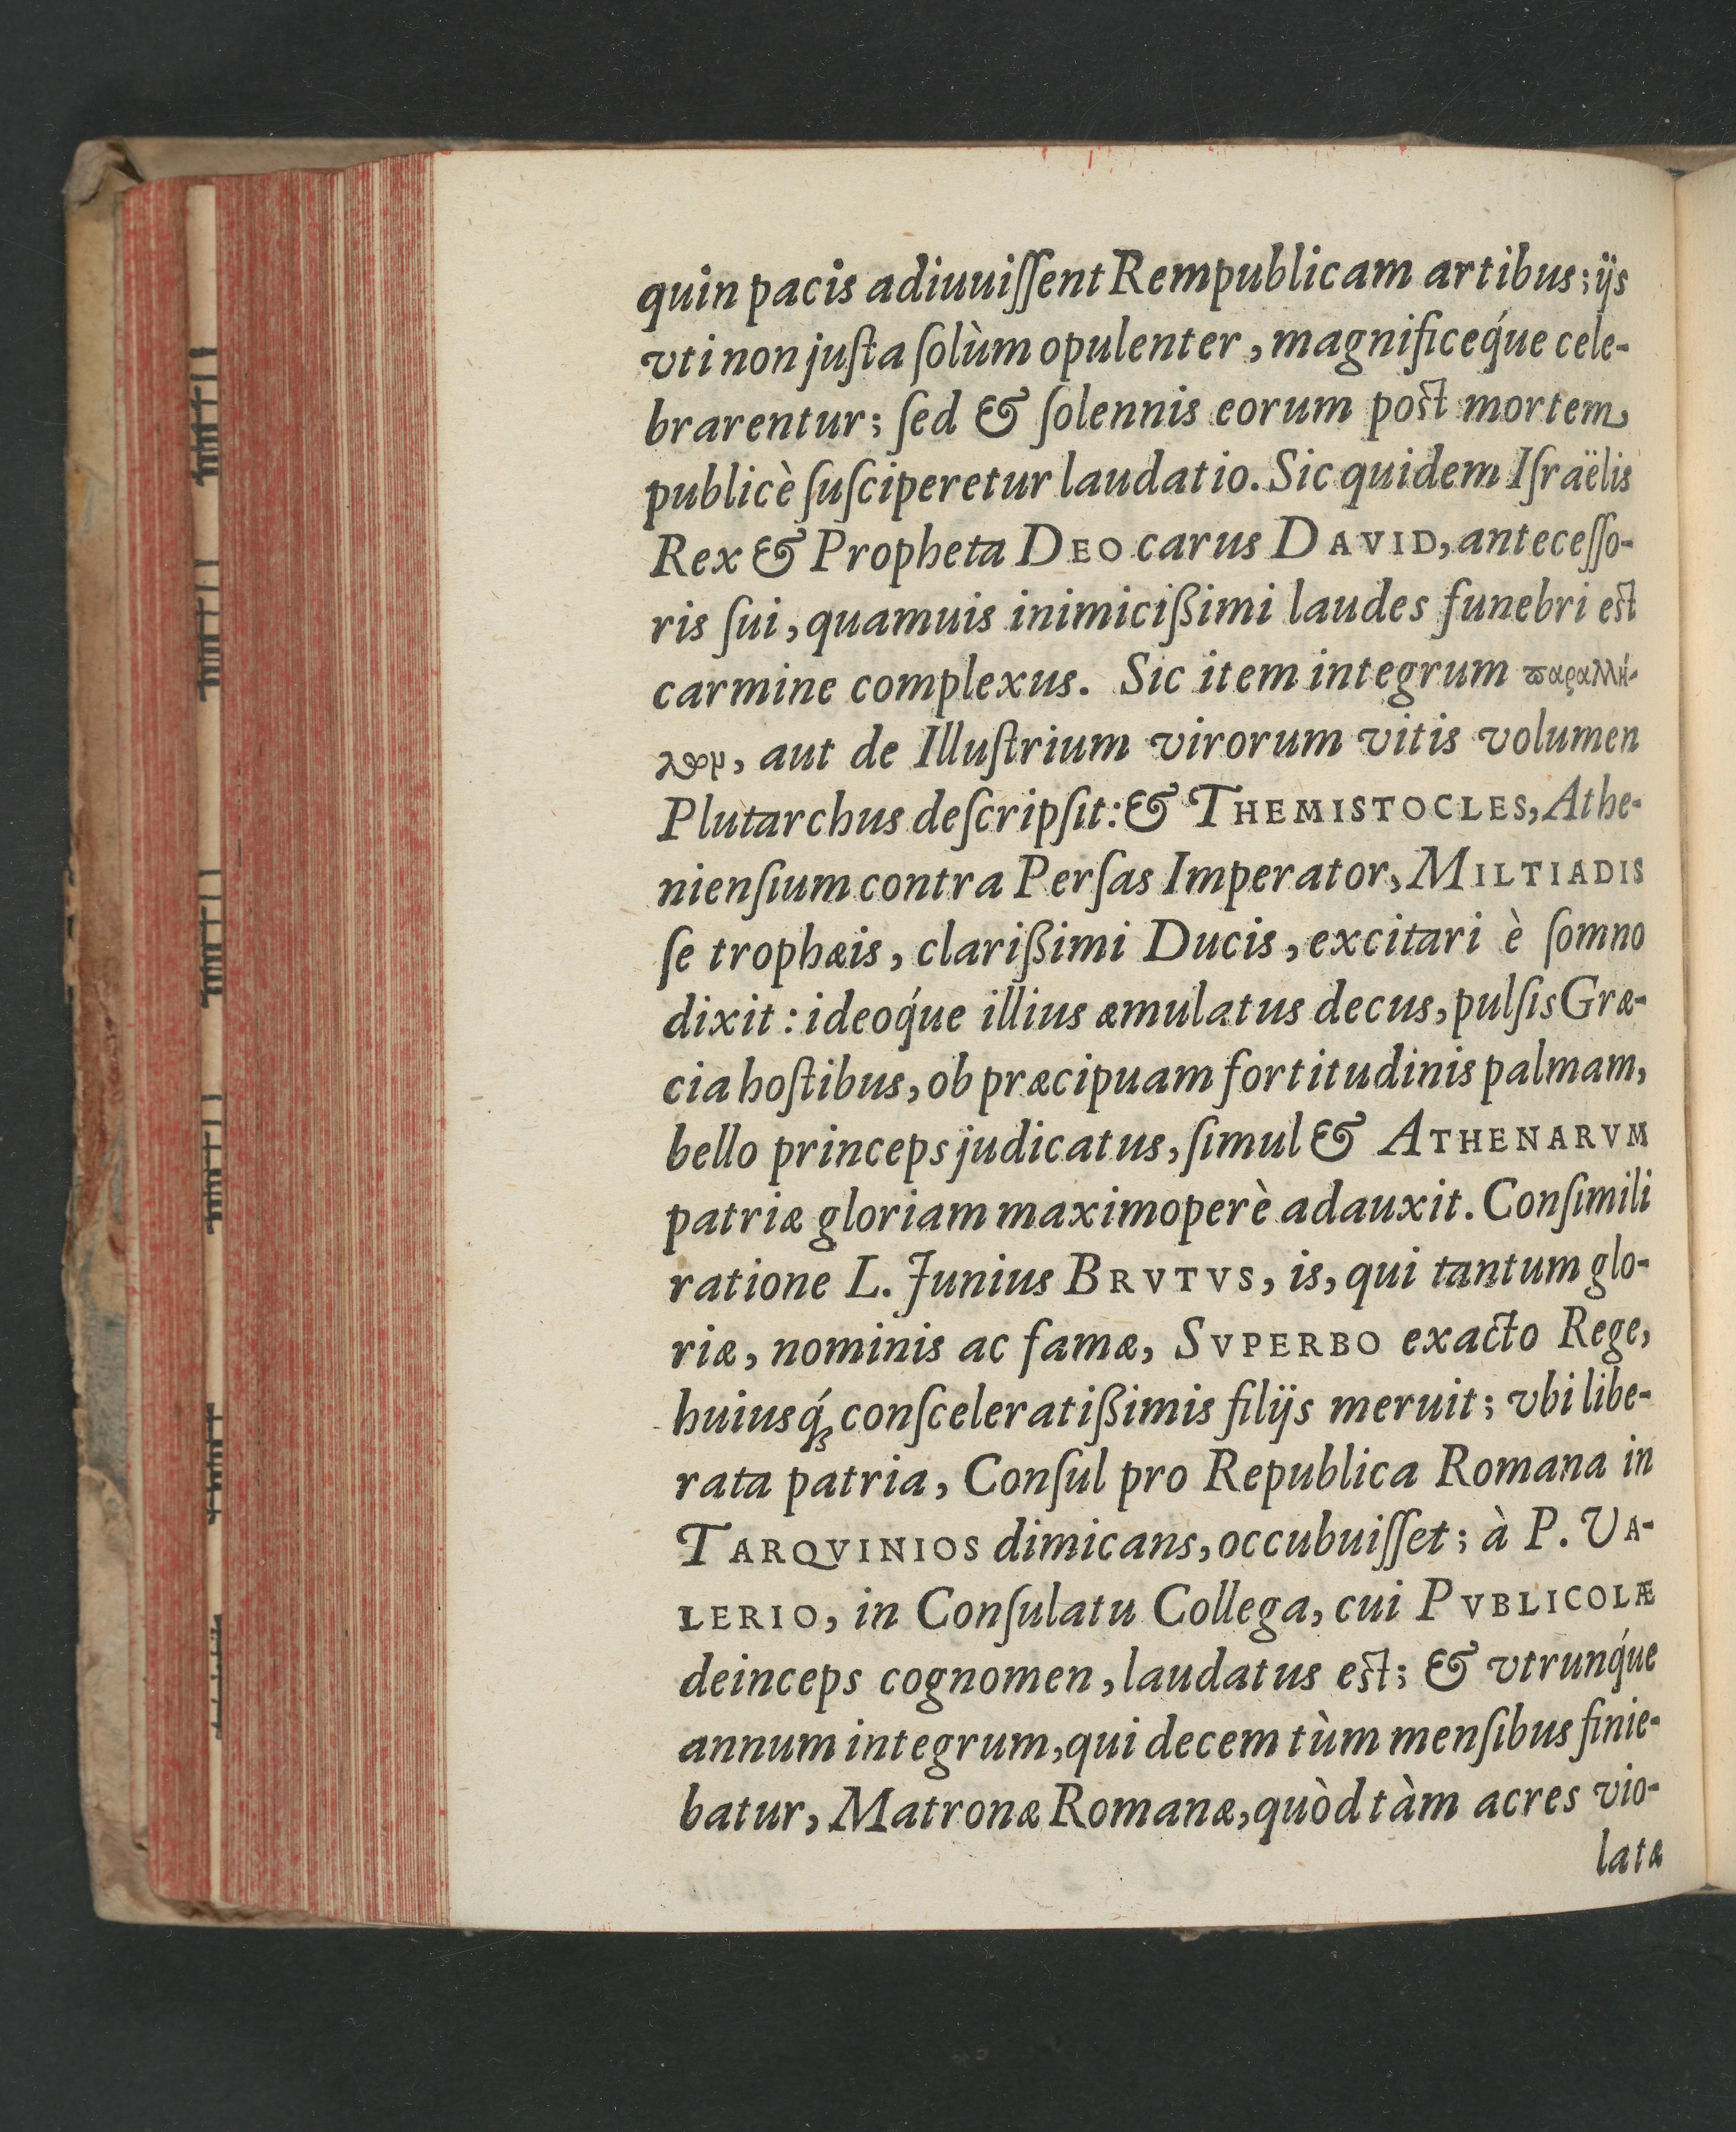 quin pacis adiuuiſſent Rempublicam artibus; ijs
vti non juſta ſolùm opulenter, magnificeq́ue cele-
brarentur; ſed & ſolennis eorum poſt mortem,
publicè ſuſciperetur laudatio. Sic quidem Iſraëlis
Rex & Propheta DEO carus DAVID, anteceſſo-
ris ſui, quamuis inimicißimi laudes funebri eſt
carmine complexus. Sic item integrum παραλλή-
λων, aut de Illuſtrium virorum vitis volumen
Plutarchus deſcripſit: & THEMISTOCLES, Athe-
nienſium contra Perſas Imperator, MILTIADIS
ſe trophæis, clarißimi Ducis, excitari è ſomno
dixit: ideoq́ue illius æmulatus decus, pulſis Græ-
cia hoſtibus, ob præcipuam fortitudinis palmam,
bello princeps judicatus, ſimul & ATHENARVM
patriæ gloriam maximoperè adauxit. Conſimili
ratione L. Junius BRVTVS, is, qui tantum glo-
riæ, nominis ac famæ, SVPERBO exacto Rege,
huiusq́; conſceleratißimis filijs meruit; vbi libe-
rata patria, Conſul pro Republica Romana in
TARQVINIOS dimicans, occubuiſſet; à P. VA-
LERIO, in Conſulatu Collega, cui PVBLICOLÆ
deinceps cognomen, laudatus eſt; & vtrunq́ue
annum integrum, qui decem tùm menſibus finie-
batur, Matronæ Romanæ, quòd tàm acres vio-
latæ